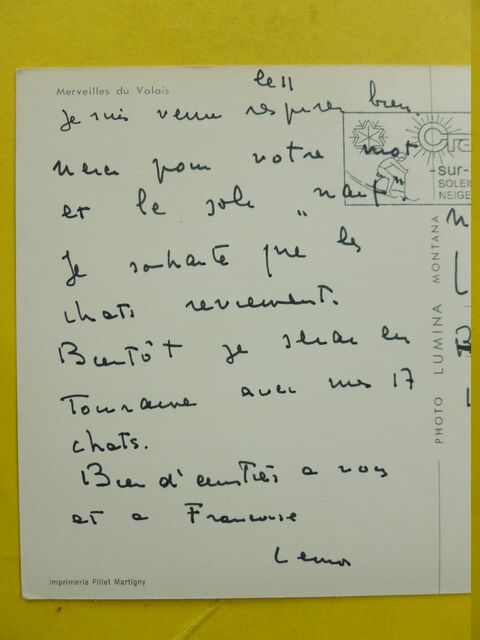 Merveilles du Valais
le 11
Je suis venue respirer bien.
Merci pour votre mot
et le joli "naïf".
Je souhaite que les
chats reviennent.
Bientôt je serai en
Touraine avec mes 17
chats.
Bien d'amitiés a vous
et a Françoise
Imprimerie Pillet Martigny
PHOTO LUMINA MONTANA
-sur-
SOLEIL
NEIGE